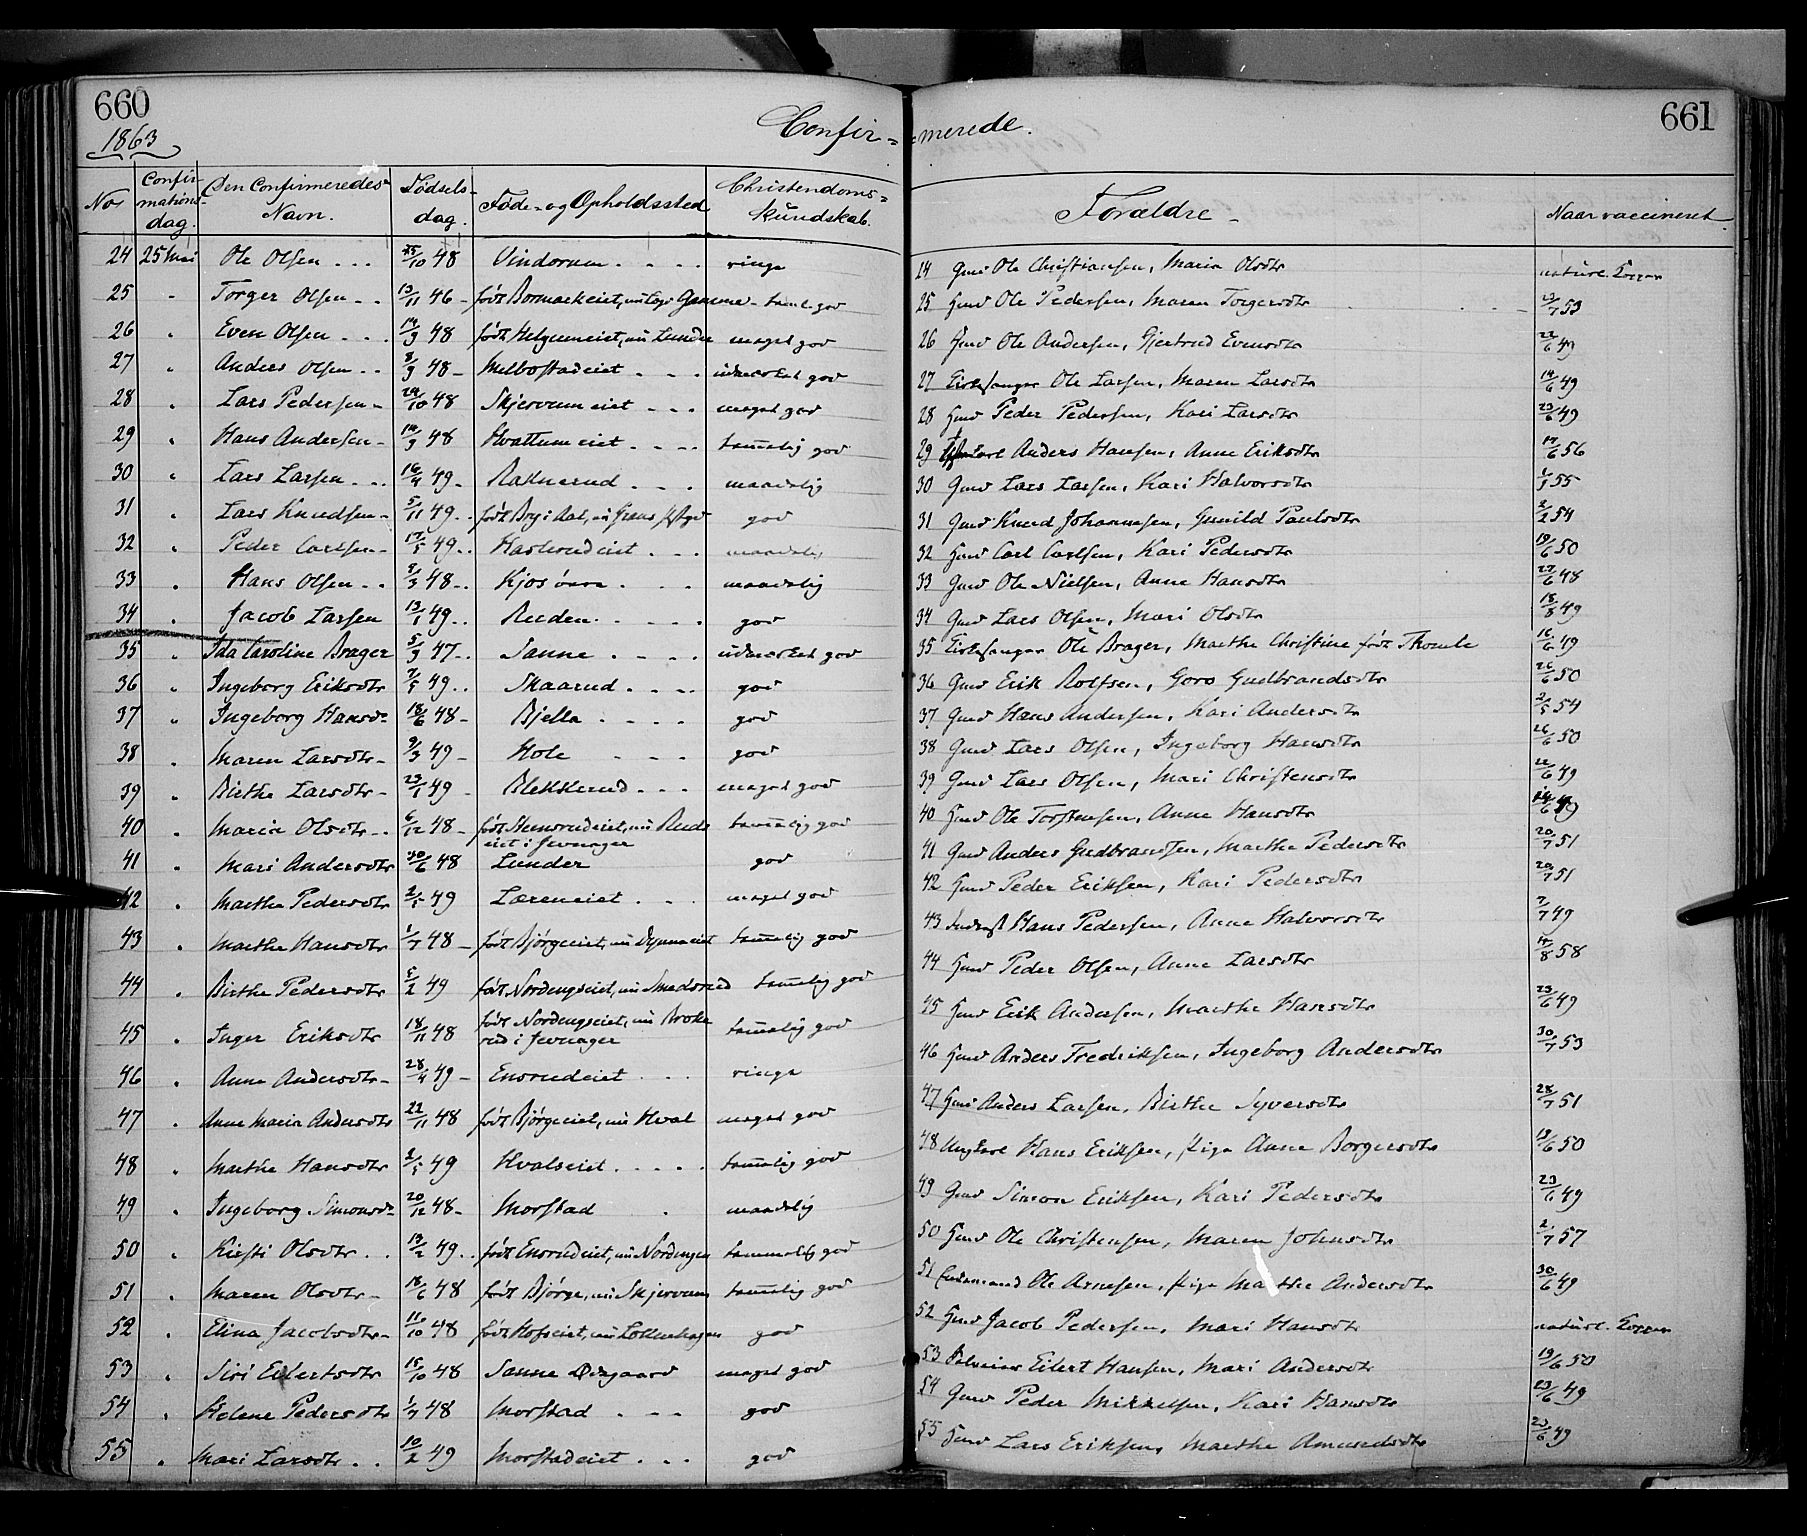 660
1863
Confir=
No
Confir-
mations-
dag.
Den Confirmeredes
Navn.
Fødsels-
dag.
Føde- og Opholdssted
Christendoms=
kundskab.
24 25 Mai Ole Olsen 25/10 48 Vindorum ringe
25 " Torger Olsen 13/11 46 født Bormarkeiet, nu Gamme taml. god
26 " Even Olsen 14/3 48 født Helgumeiet, nu Lunder meget god
27 " Anders Olsen 8/3 48 Melbostadeiet udmærket god
28 " Lars Pedersen 24/10 48 Skjervumeiet meget god
29 " Hans Andersen 14/3 48 Hvattumeiet temmelig god
30 " Lars Larsen 16/4 49 Raknerud maadelig
31 " Lars Knudsen 5/11 49 født i Aal, nu Grans god
32 " Peder Carlsen 17/5 49 maadelig
33 " Hans Olsen 8/3 48 Kjos øvre maadelig
34 " Jacob Larsen 13/1 49 Ruden god
35 " Ida Caroline Brager 5/3 47 Sanne udmærket god
36 " Ingeborg Eriksdtr 7/5 49 Skaarud god
37 " Ingeborg Hansd. 18/6 48 Bjella god
38 " Maren Larsdtr 9/3 49 Hole god
39 " Birthe Larsdtr 23/1 49 Blekkerud meget god
40 " Maria Olsdtr 6/12 48 født Hemsrudeiet, nu Ruds
eiet i Jevnager temmelig god
41 " Mari Andersdtr 30/6 48 Lunder god
42 " Marthe Pedersdtr 2/1 49 Læreneiet meget god
43 " Marthe Hansdtr 1/7 48 født Bjørgeeiet, nu Dynnaeiet temmelig god
44 " Birthe Pedersdtr 5/2 49 født Nordengseiet, nu Smedsrud temmelig god
45 " Inger Eriksdtr 18/11 48 født Nordengseiet, nu Broke
rud i Jevnager temmelig god
46 " Anne Andersdtr 28/4 49 Ensrudeiet ringe
47 " Anne Maria Andersdtr 22/11 48 født Bjørgeeiet, nu Hval meget god
48 " Marthe Hansdtr 2/5 49 Hvalseiet temmelig god
49 " Ingeborg Simonsd. 20/12 48 Morstad maadelig
50 " Kirsti Olsdtr 13/2 49 født Ensrudeiet, nu Nordengen temmelig god
51 " Maren Olsdtr 18/6 48 født Bjørge, nu Skjervum temmelig god
52 " Elina Jacobsdtr 11/10 48 født Hofseiet, nu god
53 " Siri Eilertsdtr 15/10 48 Sanne Ødegaard meget god
54 " Helene Pedersdtr 1/7 48 Morstad god
55 " Mari Larsdtr 10/2 49 Morstadeiet god
661
=merede.
Forældre
Naar vaccineret
24 Gmd Ole Christiansen, Maria Olsdtr naturl. Kopper
25 Hmd Ole Pedersen, Maren Torgersdtr 23/7 53
26 Hmd Ole Andersen, Gjertrud Evensdtr 22/6 49
27 Kirkesanger Ole Larsen, Maren Larsdtr 14/6 49
28 Hmd Peder Pedersen, Kari Larsdtr 23/6 49
29 Anders Hansen, Anne Eriksdtr 14/6 56
30 Gmd Lars Larsen, Kari Halvorsdtr 1/9 55
31 Gmd Knud Johannesen, Gunild Paulsdtr 2/2 54
32 Hmd Carl Carlsen, Kari Pedersdtr 19/6 50
33 Gmd Ole Nielsen, Anne Hansdtr 27/6 48
34 Gmd Lars Olsen, Mari Olsdtr 18/8 49
35 Kirkesanger Ole Brager, Marthe Christine født Thomle 16/6 49
36 Gmd Erik Rolfsen, Goro Gudbrandsdtr 26/6 50
37 Gmd Hans Andersen, Kari Andersdtr 2/5 54
38 Gmd Lars Olsen, Ingeborg Hansdtr 26/6 50
39 Gmd Lars Olsen, Mari Christensdtr 22/6 49
40 Hmd Ole Torstensen, Anne Hansdtr 14/6 49
41 Gmd Anders Gudbrandsen, Marthe Pedersdtr 20/7 51
42 Hmd Peder Eriksen, Kari Pedersdtr 20/7 51
43 Inderst Hans Pedersen, Anne Halvorsdtr 7/7 49
44 Hmd Peder Olsen, Anne Larsdtr 4/8 58
45 Hmd Erik Andersen, Marthe Hansdtr 23/6 49
46 Hmd Anders Fredriksen, Ingeborg Andersdtr 30/7 53
47 Hmd Anders Larsen, Birthe Syversdtr 28/7 51
48 Ungkarl Hans Eriksen, Pige Anne Borgersdtr 19/6 50
49 Gmd Simon Eriksen, Kari Pedersdtr 23/6 49
50 Hmd Ole Christensen, Maren Johnsdtr 2/7 57
51 Enkemand Ole Arnesen, Pige Marthe Andersdtr 30/6 49
52 Hmd Jacob Pedersen, Mari Hansdtr naturl. Kopper
53 Selveier Eilert Hansen, Mari Andersdtr 19/6 50
54 Gmd Peder Mikkelsen, Kari Hansdtr 23/6 49
55 Hmd Lars Eriksen, Marthe Amundsdtr 23/6 49